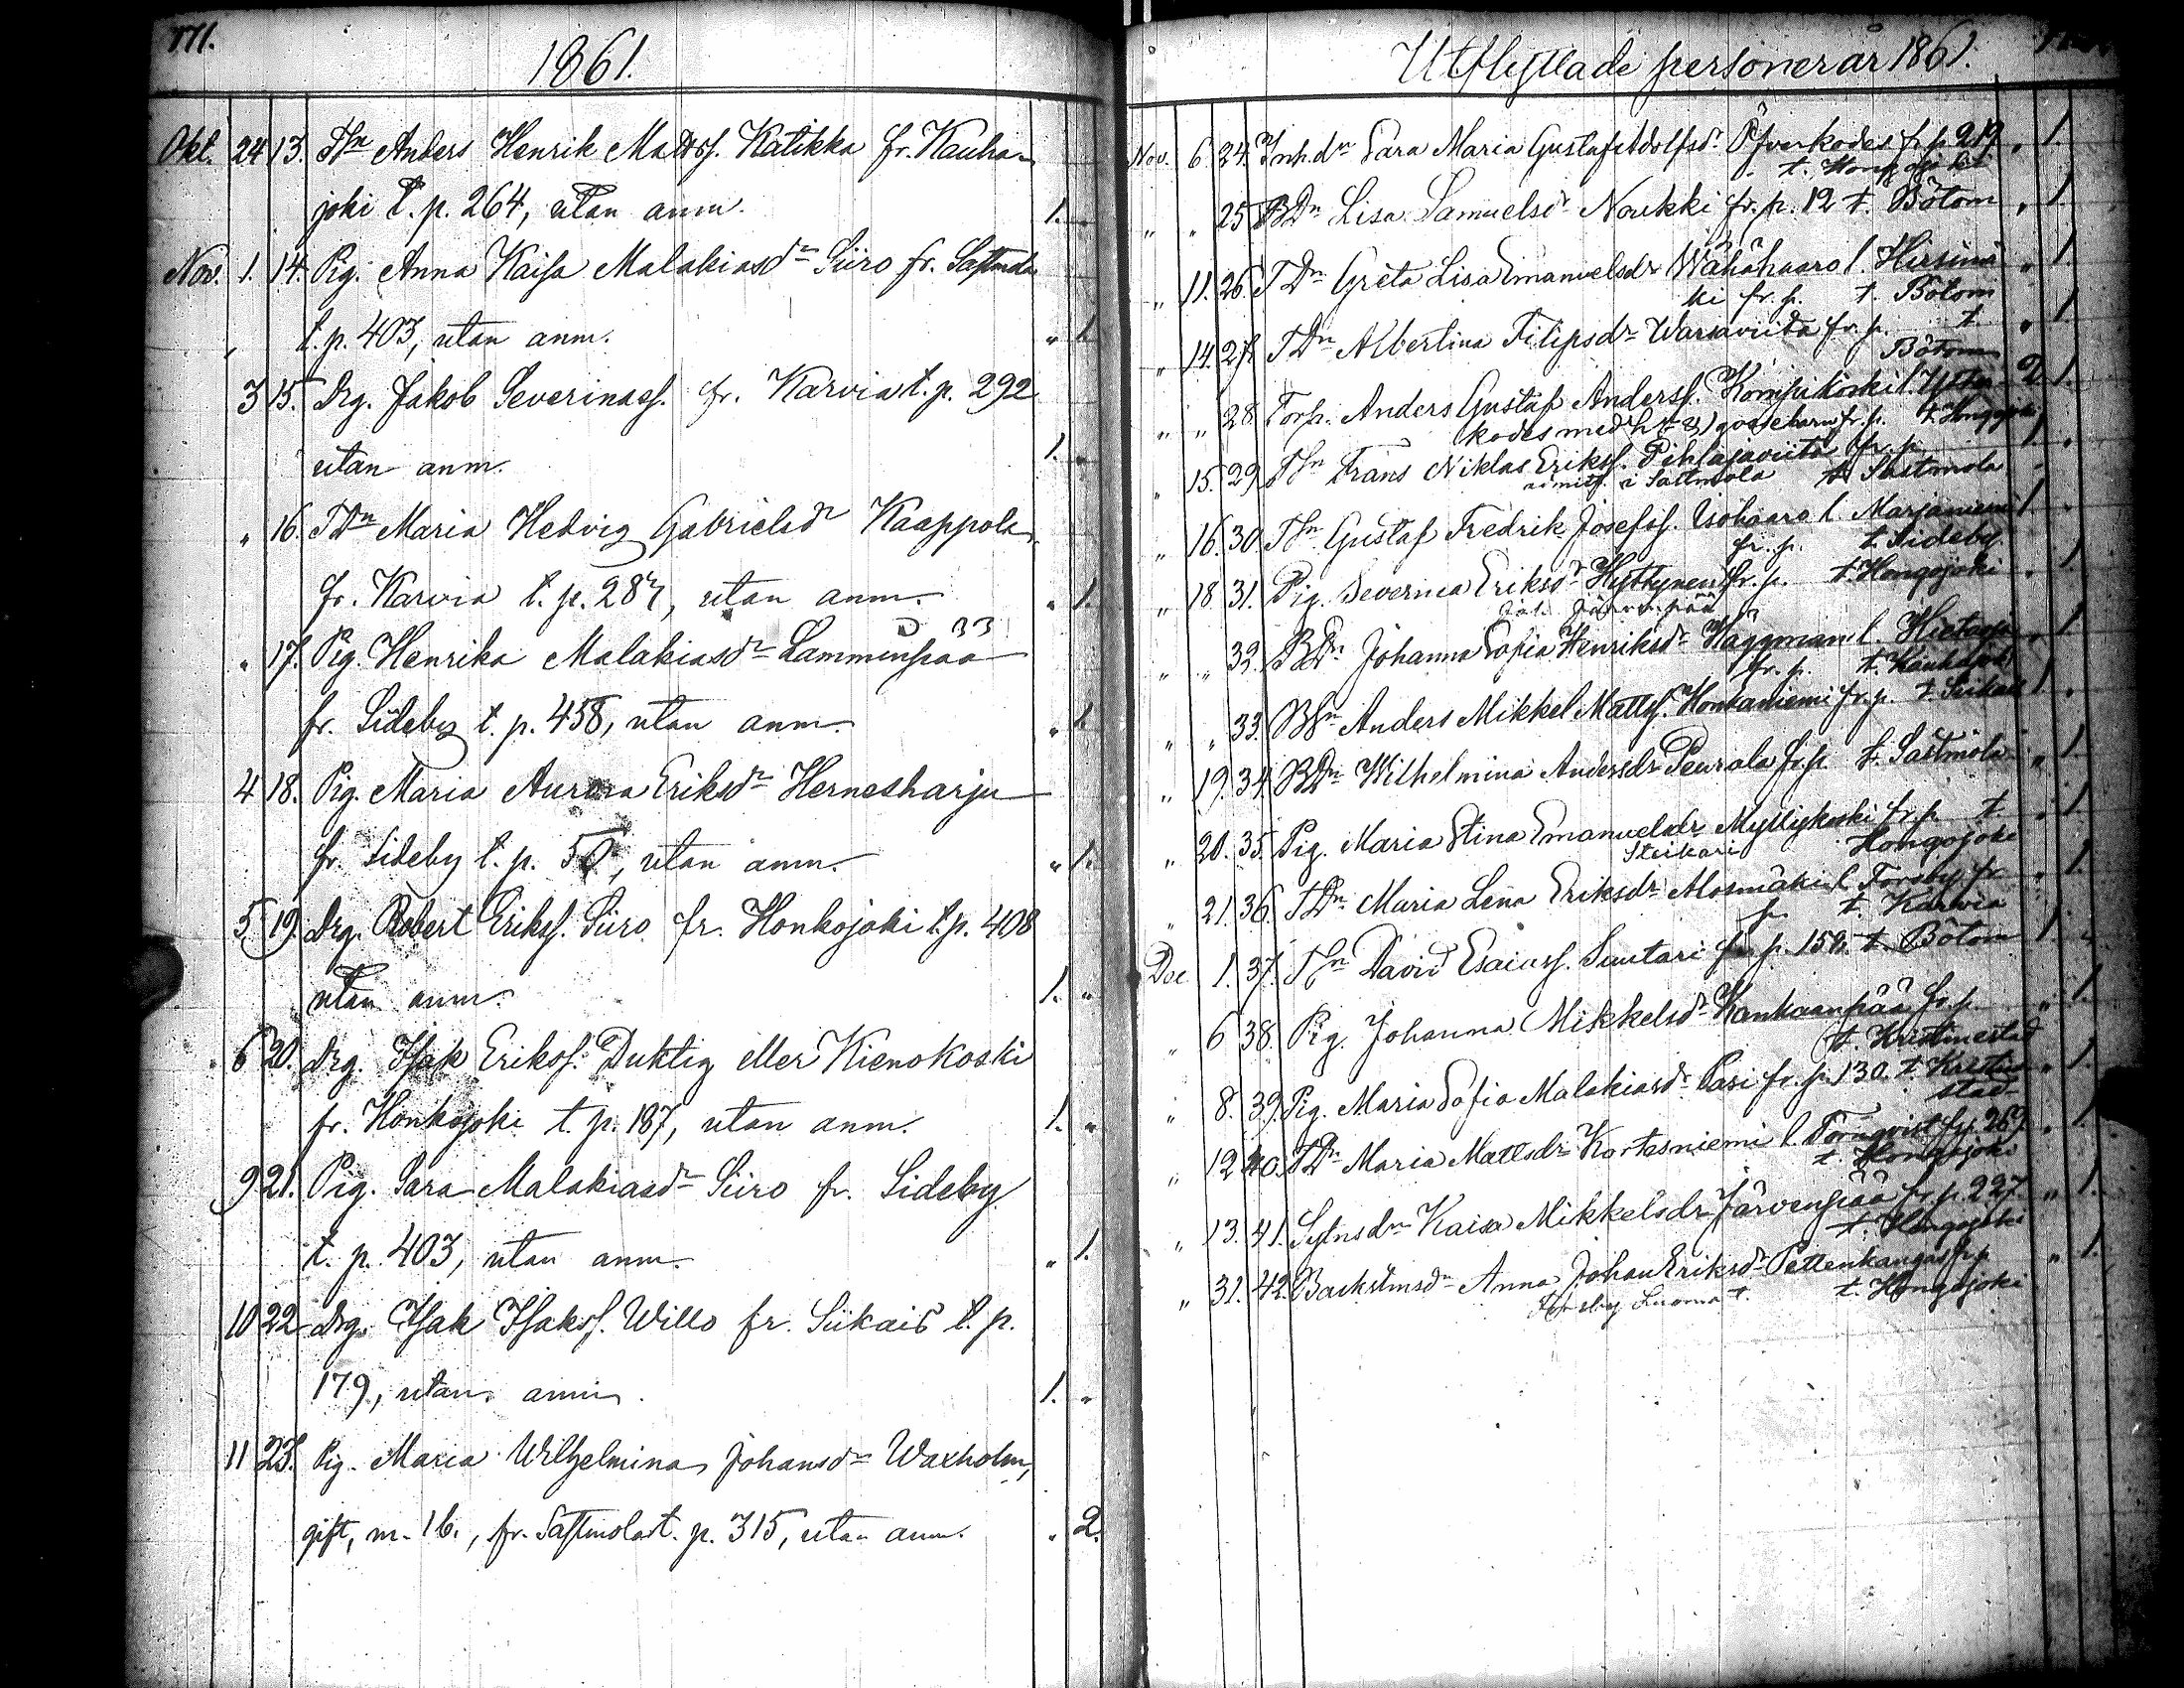 171.
1861.
Okt. 24 13. TSn Anders Henrik Mattss. Katikka fr. Kauha-
joki t. p. 264, utan anm. 1. "
Nov. 1. 14. Pig. Anna Kaisa Malakiasdr Siiro fr. Sastmola
t. p. 403, utan anm. " 1.
3 15. Drg. Jakob Severinss. fr. Karvia t. p. 292
utan anm. 1. "
" 16. TDn Maria Hedvig Gabrielsdr Kaappola
fr. Karvia t. p. 287, utan anm. " 1.
33
" 17. Pig. Henrika Malakiasdr Lammenpää
fr. Sideby t. p. 458, utan anm. " 1.
4 18. Pig. Maria Aurora Eriksdr Hernesharju
fr. Sideby t. p. 50, utan anm. " 1.
5 19. Drg. Robert Erikss. Siiro fr. Honkojoki t. p. 408
utan anm. 1. "
6 20. Drg. Isak Erikss. Duktig eller Kienokoski
fr. Honkojoki t. p. 187, utan anm. 1. "
9 21. Pig. Sara Malakiasdr Siiro fr. Sideby
t. p. 403, utan anm. " 1.
10 22 Drg. Isak Isakss. Willo fr. Siikais t. p.
179, utan anm. 1. "
11 23. Pig. Maria Wilhelmina Johansdr Waxholm,
gift, m. 1 b., fr. Sastmola t. p. 315, utan anm. " 2.
Utflyttade personer år 1861.
Nov. 6. 24. Inh.dn Sara Maria Gustaf Adolfsdr Öfverkodes fr. p. 219 " 1.
t. Hongojoki
" " 25 BDn Lisa Samuelsdr Noukki fr. p. 12 t. Bötom " 1.
" 11. 26. TDn Greta Lisa Emanuelsdr Wähähaaro l. Hirsimä " 1.
ki fr. p. t. Bötom
" 14. 27. TDn Albertina Filipsdr Warsaviita fr. p. t. " 1.
Bötom
" " 28. Torp. Anders Gustaf Anderss. Kompikoski l. Yfver 2 1.
kodes med h t. & 1 gossebarn fr. p. t. Hongojoki
" 15. 29 TSn Frans Niklas Erikss. Pihlajaviita fr. p. 1. "
i Sastmola t. Sastmola
" 16. 30. TSn Gustaf Fredrik Josefss. Isohaaro l. Marjaniemi 1. "
fr. p. t. Sideby
" 18 31. Pig. Severina Eriksdr Hyttynen fr. p. t. Hongojoki " 1.
Järvenpää
" " 32. BDn Johanna Sofia Henriksdr Häggman l. Hietaoja " 1.
fr. p. t. Kauhajoki
" " 33. BSn Anders Mikkel Mattss. Honkaniemi fr. p. t. Siikais 1. "
" 19. 34. BDn Wilhelmina Andersdr Peurala fr. p. t. Sastmola " 1.
" 20. 35. Pig. Maria Stina Emanuelsdr Myllykoski fr. p. t. " 1.
Hongojoki
" 21. 36. TDn Maria Lena Eriksdr Mosmäki l. Forsby fr. " 1.
p. t. Karvia
Dec 1. 37. TSn David Esaiass. Suutari fr. p. 159. t. Bötom 1. "
" 6 38. Pig. Johanna Mikkelsdr Kankaanpää fr. p. " 1.
t. Kristinestad
" 8. 39. Pig. Maria Sofia Malakiasdr Pasi fr. p. 130. t. Kristine " 1.
stad
" 12 40. TDn Maria Mattsdr Kortesniemi l. Törnqvist fr. p. 269 " 1.
t. Hongojoki
" 13. 41. Sytnsdn Kaisa Mikkelsdr Järvenpää fr. p. 227 " 1.
t. Hongojoki
" 31. 42. Backstmsdr Anna Johan Eriksdr Pettenkangas fr. p. " 1.
Luoma t. t. Hongojoki